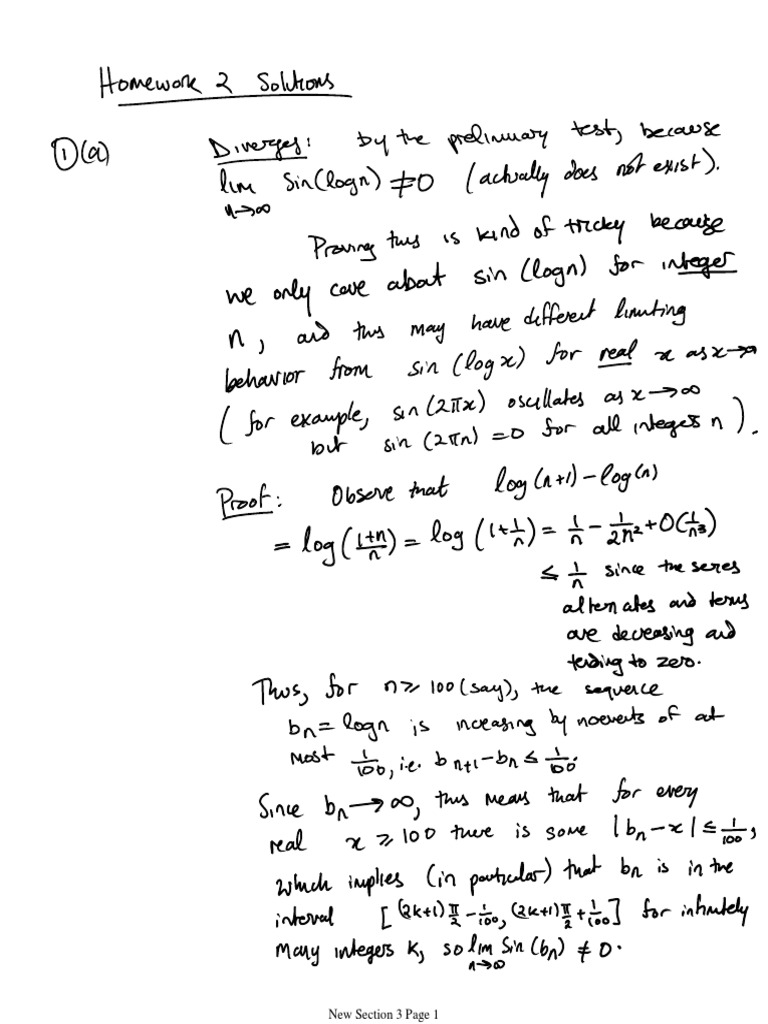 Homework 2 Solutions
①(a) Diverges: by the preliminary test, because
lim n→∞ sin(log n) ≠ 0 (actually does not exist).
Proving this is kind of tricky because
we only care about sin (log n) for integer
n, and this may have different limiting
behavior from sin (log x) for real x as x→∞
( for example, sin(2πx) oscillates as x→∞
but sin (2πn) = 0 for all integers n ).
Proof: Observe that log(n+1) - log(n)
= log((1+n)/n) = log(1+1/n) = 1/n - 1/2n² + O(1/n³)
≤ 1/n since the series
alternates and terms
are decreasing and
tending to zero.
Thus, for n ≥ 100 (say), the sequence
bₙ = log n is increasing by of at
most 1/100, i.e. bₙ₊₁ - bₙ ≤ 1/100.
Since bₙ → ∞, this means that for every
real x ≥ 100 there is some |bₙ - x| ≤ 1/100,
which implies (in particular) that bₙ is in the
interval [(2k+1)π/2 - 1/100, (2k+1)π/2 + 1/100] for infinitely
many integers k, so lim n→∞ sin(bₙ) ≠ 0.
New Section 3 Page 1